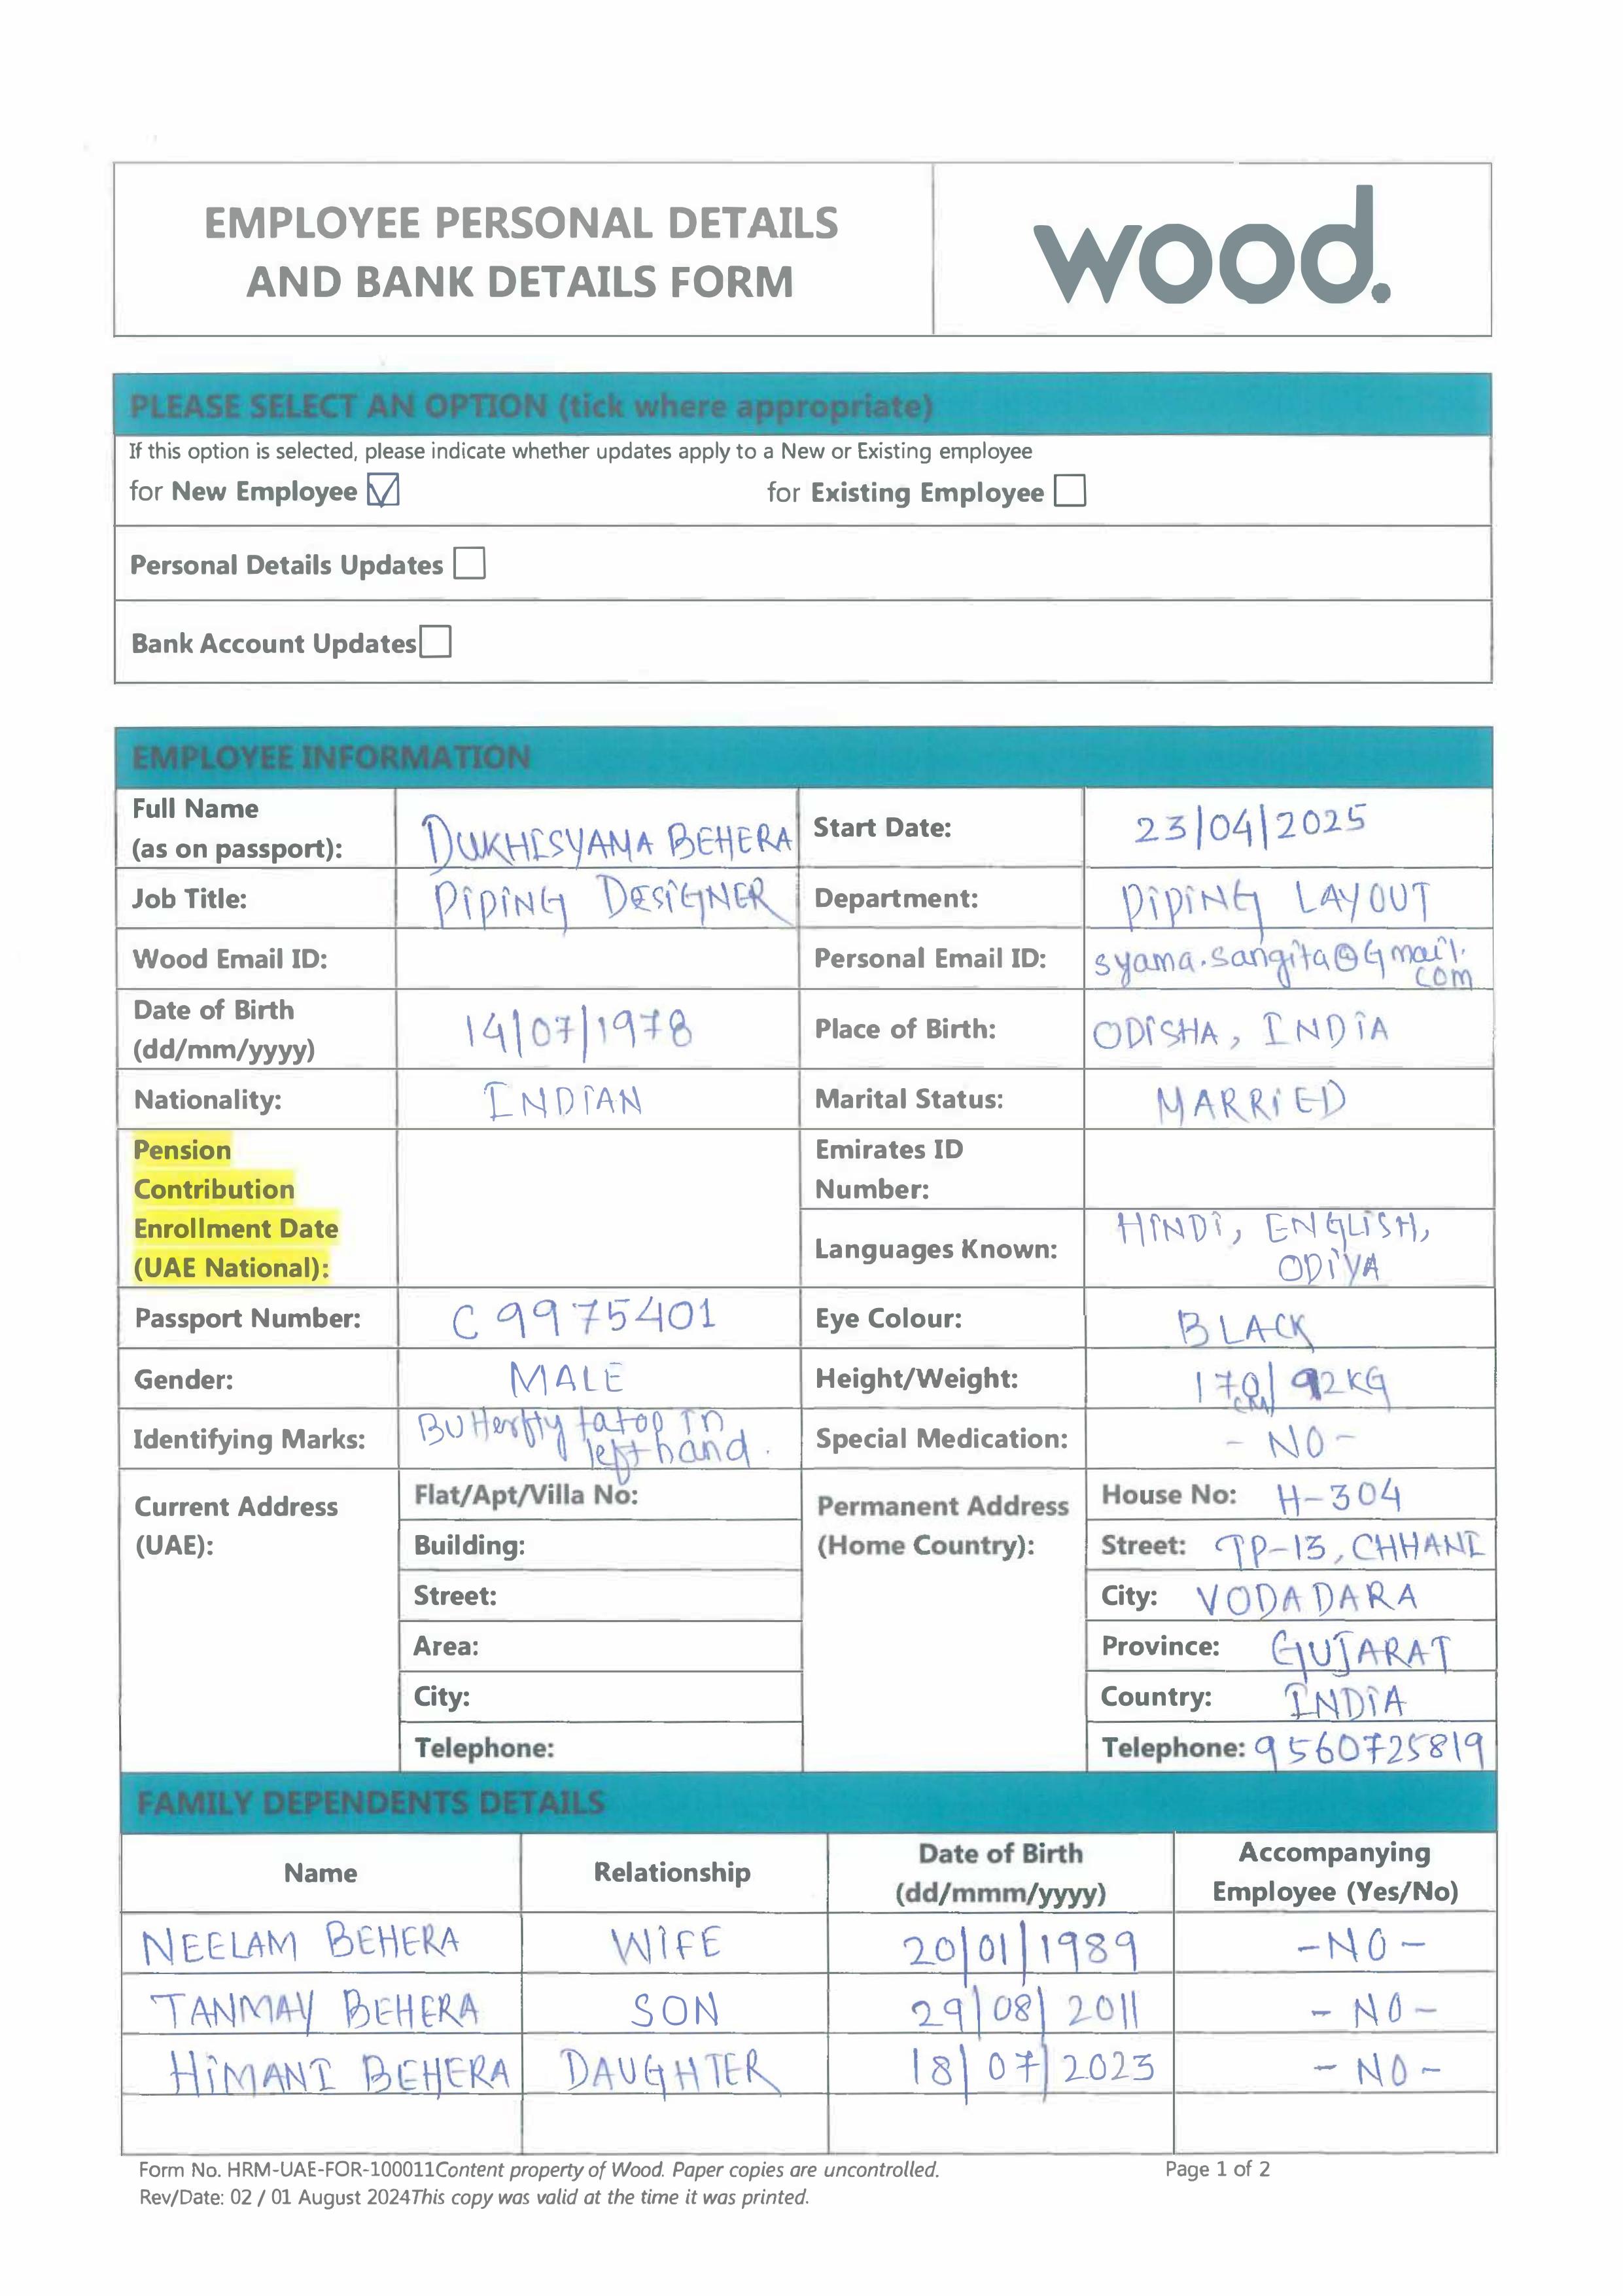 EMPLOYEE PERSONAL DETAILS
AND BANK DETAILS FORM
wood.
PLEASE SELECT AN OPTION (tick where appropriate)
If this option is selected, please indicate whether updates apply to a New or Existing employee
for New Employee for Existing Employee
Personal Details Updates
Bank Account Updates
EMPLOYEE INFORMATION
Full Name
(as on passport): DUKHISYAMA BEHERA Start Date: 23/04/2025
Job Title: PIPING DESIGNER Department: PIPING LAYOUT
Wood Email ID: Personal Email ID: syama.sangita@Gmail.
com
Date of Birth
(dd/mm/yyyy) 14/07/1978 Place of Birth: ODISHA, INDIA
Nationality: INDIAN Marital Status: MARRIED
Pension
Contribution
Enrollment Date
(UAE National):
Emirates ID
Number:
Languages Known: HINDI, ENGLISH,
ODIYA
Passport Number: C 9975401 Eye Colour: BLACK
Gender: MALE Height/Weight: 170/ 92KG
CM
Identifying Marks: Butterfly tatoo in
left hand. Special Medication: - NO -
Current Address
(UAE):
Flat/Apt/Villa No:
Building:
Street:
Area:
City:
Telephone:
Permanent Address
(Home Country):
House No: H-304
Street: TP-13, CHHANI
City: VODADARA
Province: GUJARAT
Country: INDIA
Telephone: 9560725819
FAMILY DEPENDENTS DETAILS
Name Relationship Date of Birth
(dd/mmm/yyyy) Accompanying
Employee (Yes/No)
NEELAM BEHERA WIFE 20/01/1989 - NO -
TANMAY BEHERA SON 29/08/2011 - NO -
HIMANI BEHERA DAUGHTER 18/07/2023 - NO -
Form No. HRM-UAE-FOR-100011Content property of Wood. Paper copies are uncontrolled. Page 1 of 2
Rev/Date: 02 / 01 August 2024This copy was valid at the time it was printed.